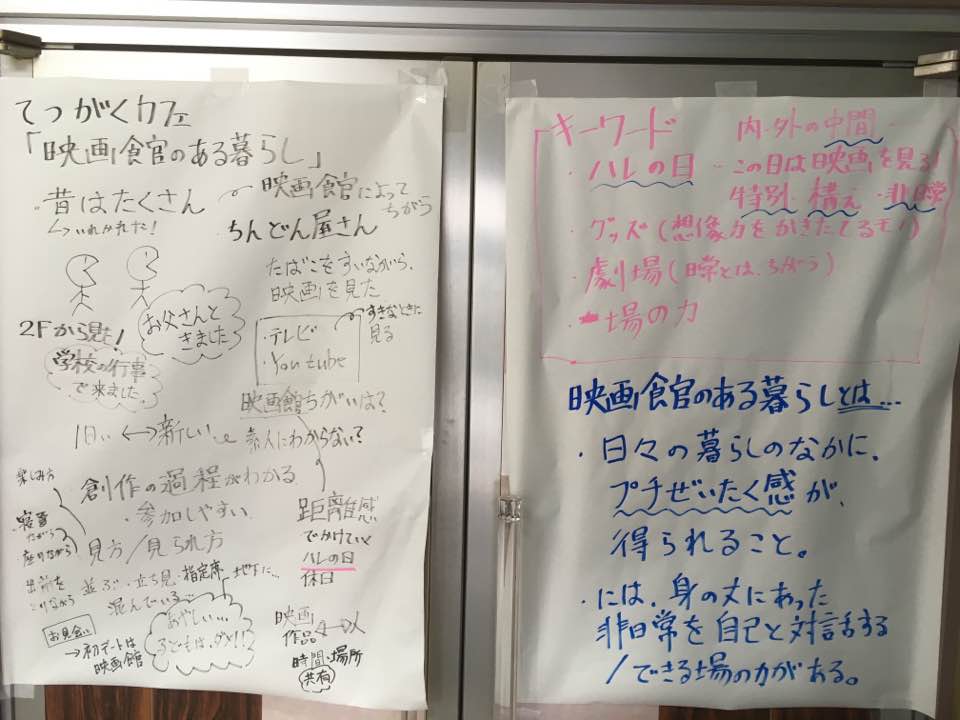 てつがくカフェ
「映画館のある暮らし」
・昔はたくさん
いれかれた!
映画館によって
ちがう
ちんどん屋さん
たばこをすいながら、
映画を見た
2Fから見た!
お父さんと
きました
学校の行事
で来ました。
・テレビ
・You tube
すきなときに
見る
映画館ちがいは?
旧い⟷新しい
素人にわからない?
創作の過程がわかる
・参加しやすい
楽しみ方
・寝ながら
・座りながら
出前を
とりながら
見方/見られ方
並ぶ・立ち見・指定席
地下に…
混んでいる…
あやしい…
子どもは、ダメ!!
お見合い
→初デートは
映画館
距離感
でかけていく
ハレの日
休日
映画
作品⟷人
時間・場所
共有
キーワード
内・外の中間
・ハレの日…この日は映画を見る!
特別・構え・非日常
・グッズ(想像力をかきたてるモノ)
・劇場(日常とは、ちがう)
・場の力
映画館のある暮らしとは…
・日々の暮らしのなかに、
プチぜいたく感が、
得られること。
・には、身の丈にあった
非日常を自己と対話する
/できる場の力がある。